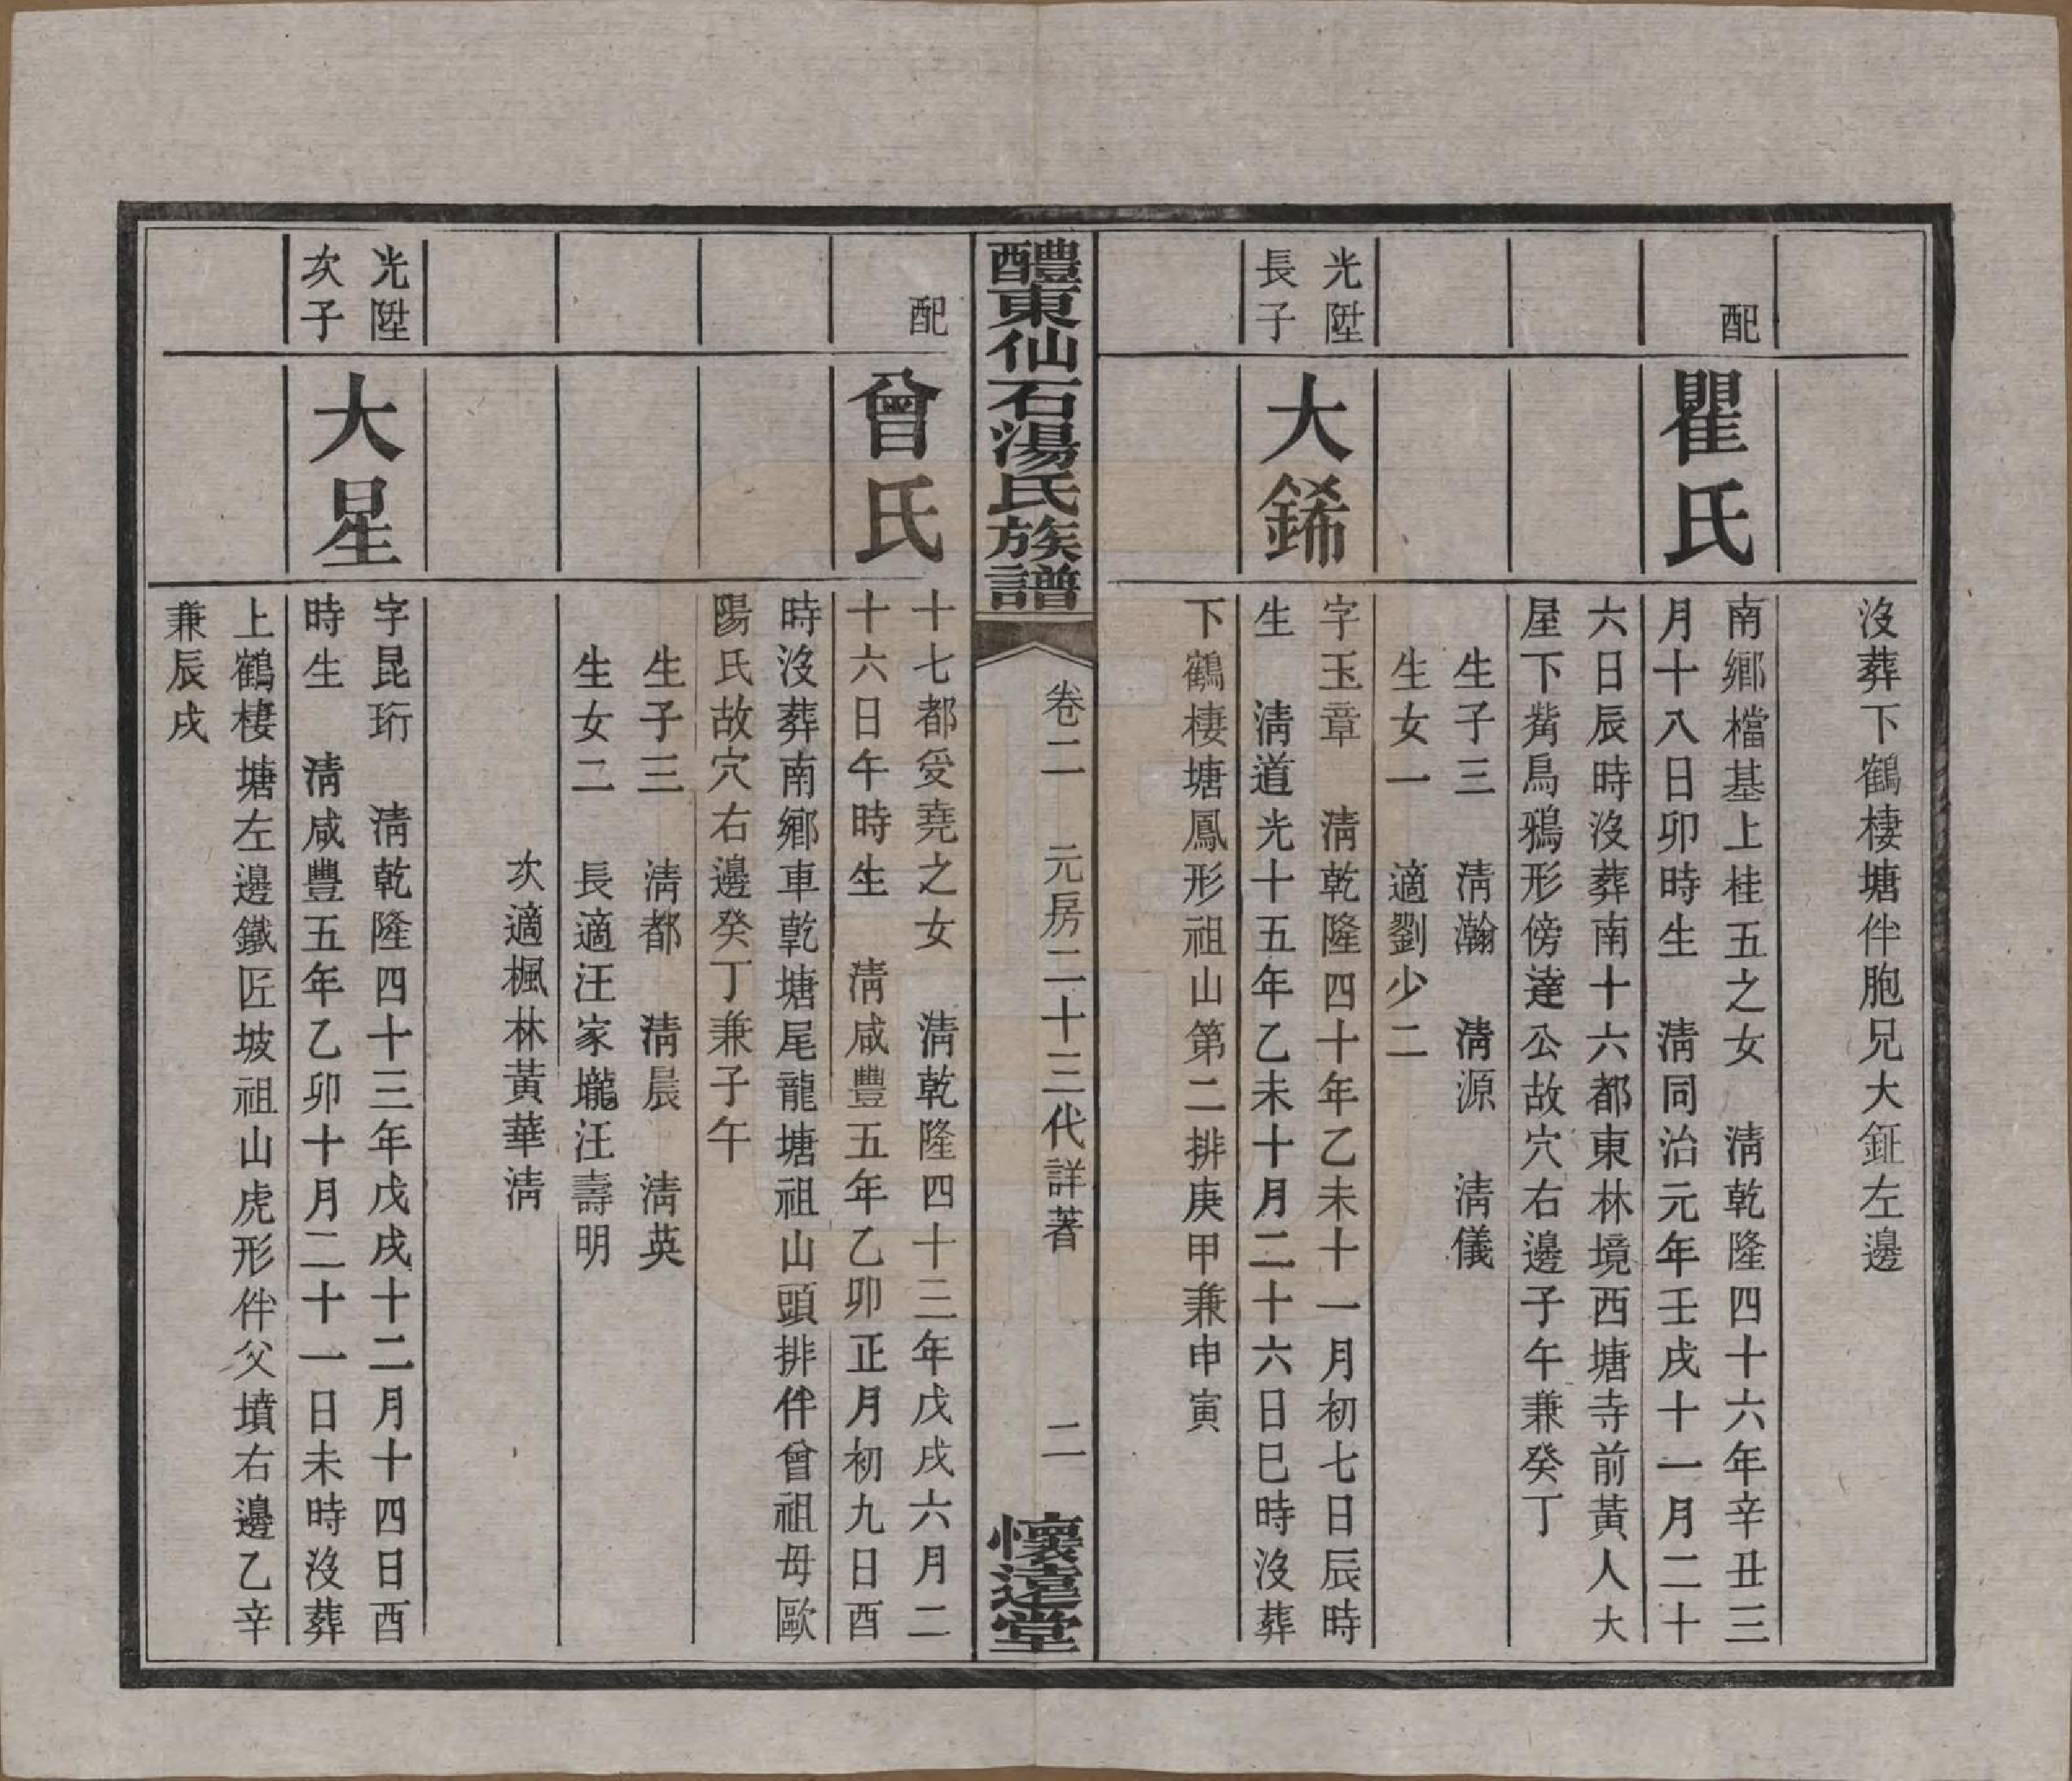 沒葬下鶴棲塘伴胞兄大鉦左邊
配
瞿氏
南鄉檔基上桂五之女　清乾隆四十六年辛丑三
月十八日卯時生　清同治元年壬戌十一月二十
六日辰時沒葬南十六都東林境西塘寺前黃人大
屋下觜鳥鴉形傍達公故穴右邊子午兼癸丁
生子三　清瀚　清源　清儀
生女一　適劉少二
光陞
長子
大鋿
字玉章　清乾隆四十年乙未十一月初七日辰時
生　清道光十五年乙未十月二十六日巳時沒葬
下鶴棲塘鳳形祖山第二排庚甲兼申寅
醴東仙石湯氏族譜
卷二　元房二十三代詳著　二
懷遠堂
配
曾氏
十七都受堯之女　清乾隆四十三年戊戌六月二
十六日午時生　清咸豐五年乙卯正月初九日酉
時沒葬南鄉車乾塘尾龍塘祖山頭排伴曾祖毋歐
陽氏故穴右邊癸丁兼子午
生子三　清都　清晨　清英
生女二　長適汪家壠汪壽明
次適楓林黃華清
光陞
次子
大星
字昆珩　清乾隆四十三年戊戌十二月十四日酉
時生　清咸豐五年乙卯十月二十一日未時沒葬
上鶴棲塘左邊鐵匠坡祖山虎形伴父墳右邊乙辛
兼辰戌